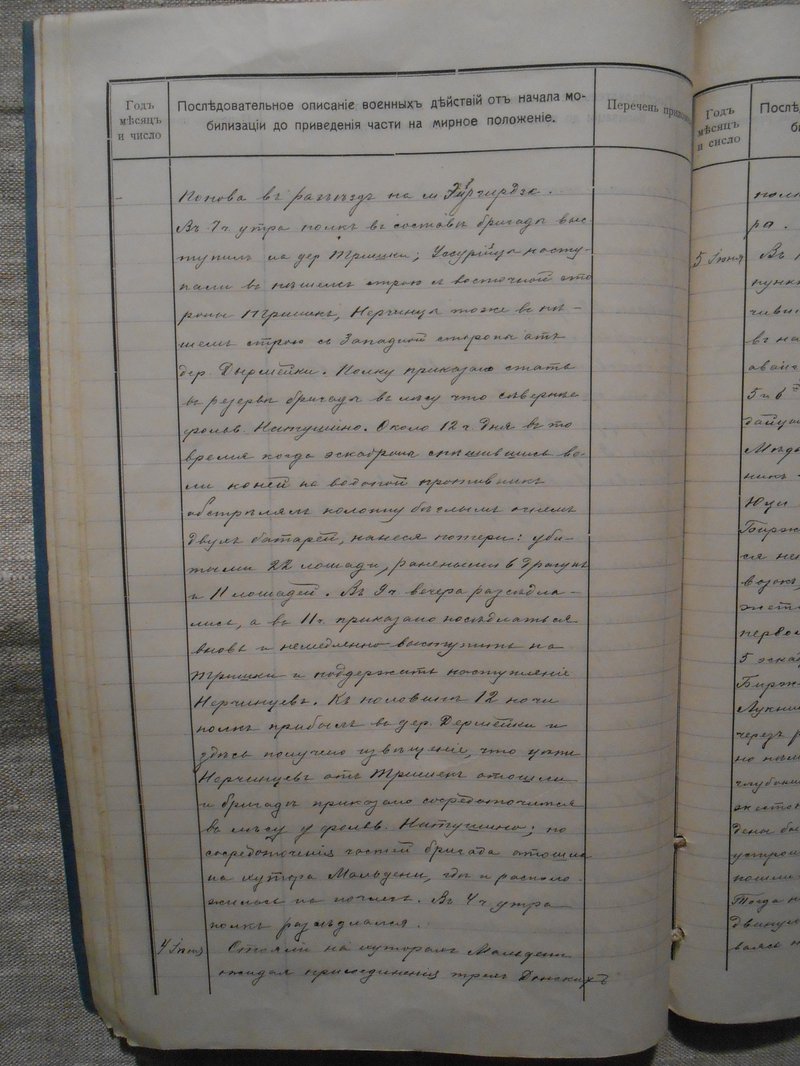 Годъ
мѣсяцъ
и число
Послѣдовательное описаніе военныхъ дѣйствій отъ начала мо-
билизаціи до приведенія части на мирное положеніе.
Перечень прилож
Попова въ разъѣздъ на м.
Въ 7 ч. утра полкъ въ составѣ бригады выс-
тупилъ на дер. Тришки; Уссурійцы насту-
пали въ пѣшемъ строю съ восточной сто
роны Тришекъ, Нерчинцы тоже въ пѣ-
шемъ строю съ Западной стороны отъ
дер. Дырмейки. Полку приказано стать
въ резервѣ бригады въ лѣсу что сѣвернѣе
фольв. Натушино. Около 12 ч. дня въ то
время когда эскадроны спѣшившись ве-
ли коней на водопой противникъ
обстрѣлялъ колонну бѣглымъ огнемъ
двухъ батарей, нанеся потери: уби-
тыми 22 лошади, ранеными 6 драгунъ
и 11 лошадей. Въ 9 ч. вечера разсѣдла-
лись, а въ 11 ч. приказано посѣдлаться
вновь и немедленно выступить на
Тришки и поддержать наступленіе
Нерчинцевъ. Къ половинѣ 12 ночи
полкъ прибылъ въ дер. Дермейки и
здѣсь получено извѣщеніе, что цѣпи
Нерчинцевъ отъ Тришекъ отошли
и бригадѣ приказано сосредоточится
въ лѣсу у фольв. Натушино; по
сосредоточеніи частей бригада отошла
на хутора Мальдени, гдѣ и располо-
жилась на ночлегъ. Въ 4 ч. утра
полкъ разсѣдлался.
4 Іюня
Стояли на хуторахъ Мальдени
ожидая присоединенія трехъ Донскихъ
Годъ
мѣсяцъ
и сисло
Послѣд
би
полк
ра.
5 Іюня
Въ
пунк
чивш
въ на
авані
5 и 6
дайця
Мѣд
никъ
Юци
Бирж
ся не
возок
жест
перво
5 эскад
Бирж
Лукни
чередъ
но
глубоки
жесто
дены бы
устрои
пошли
Тогда
двинул
ваясь н